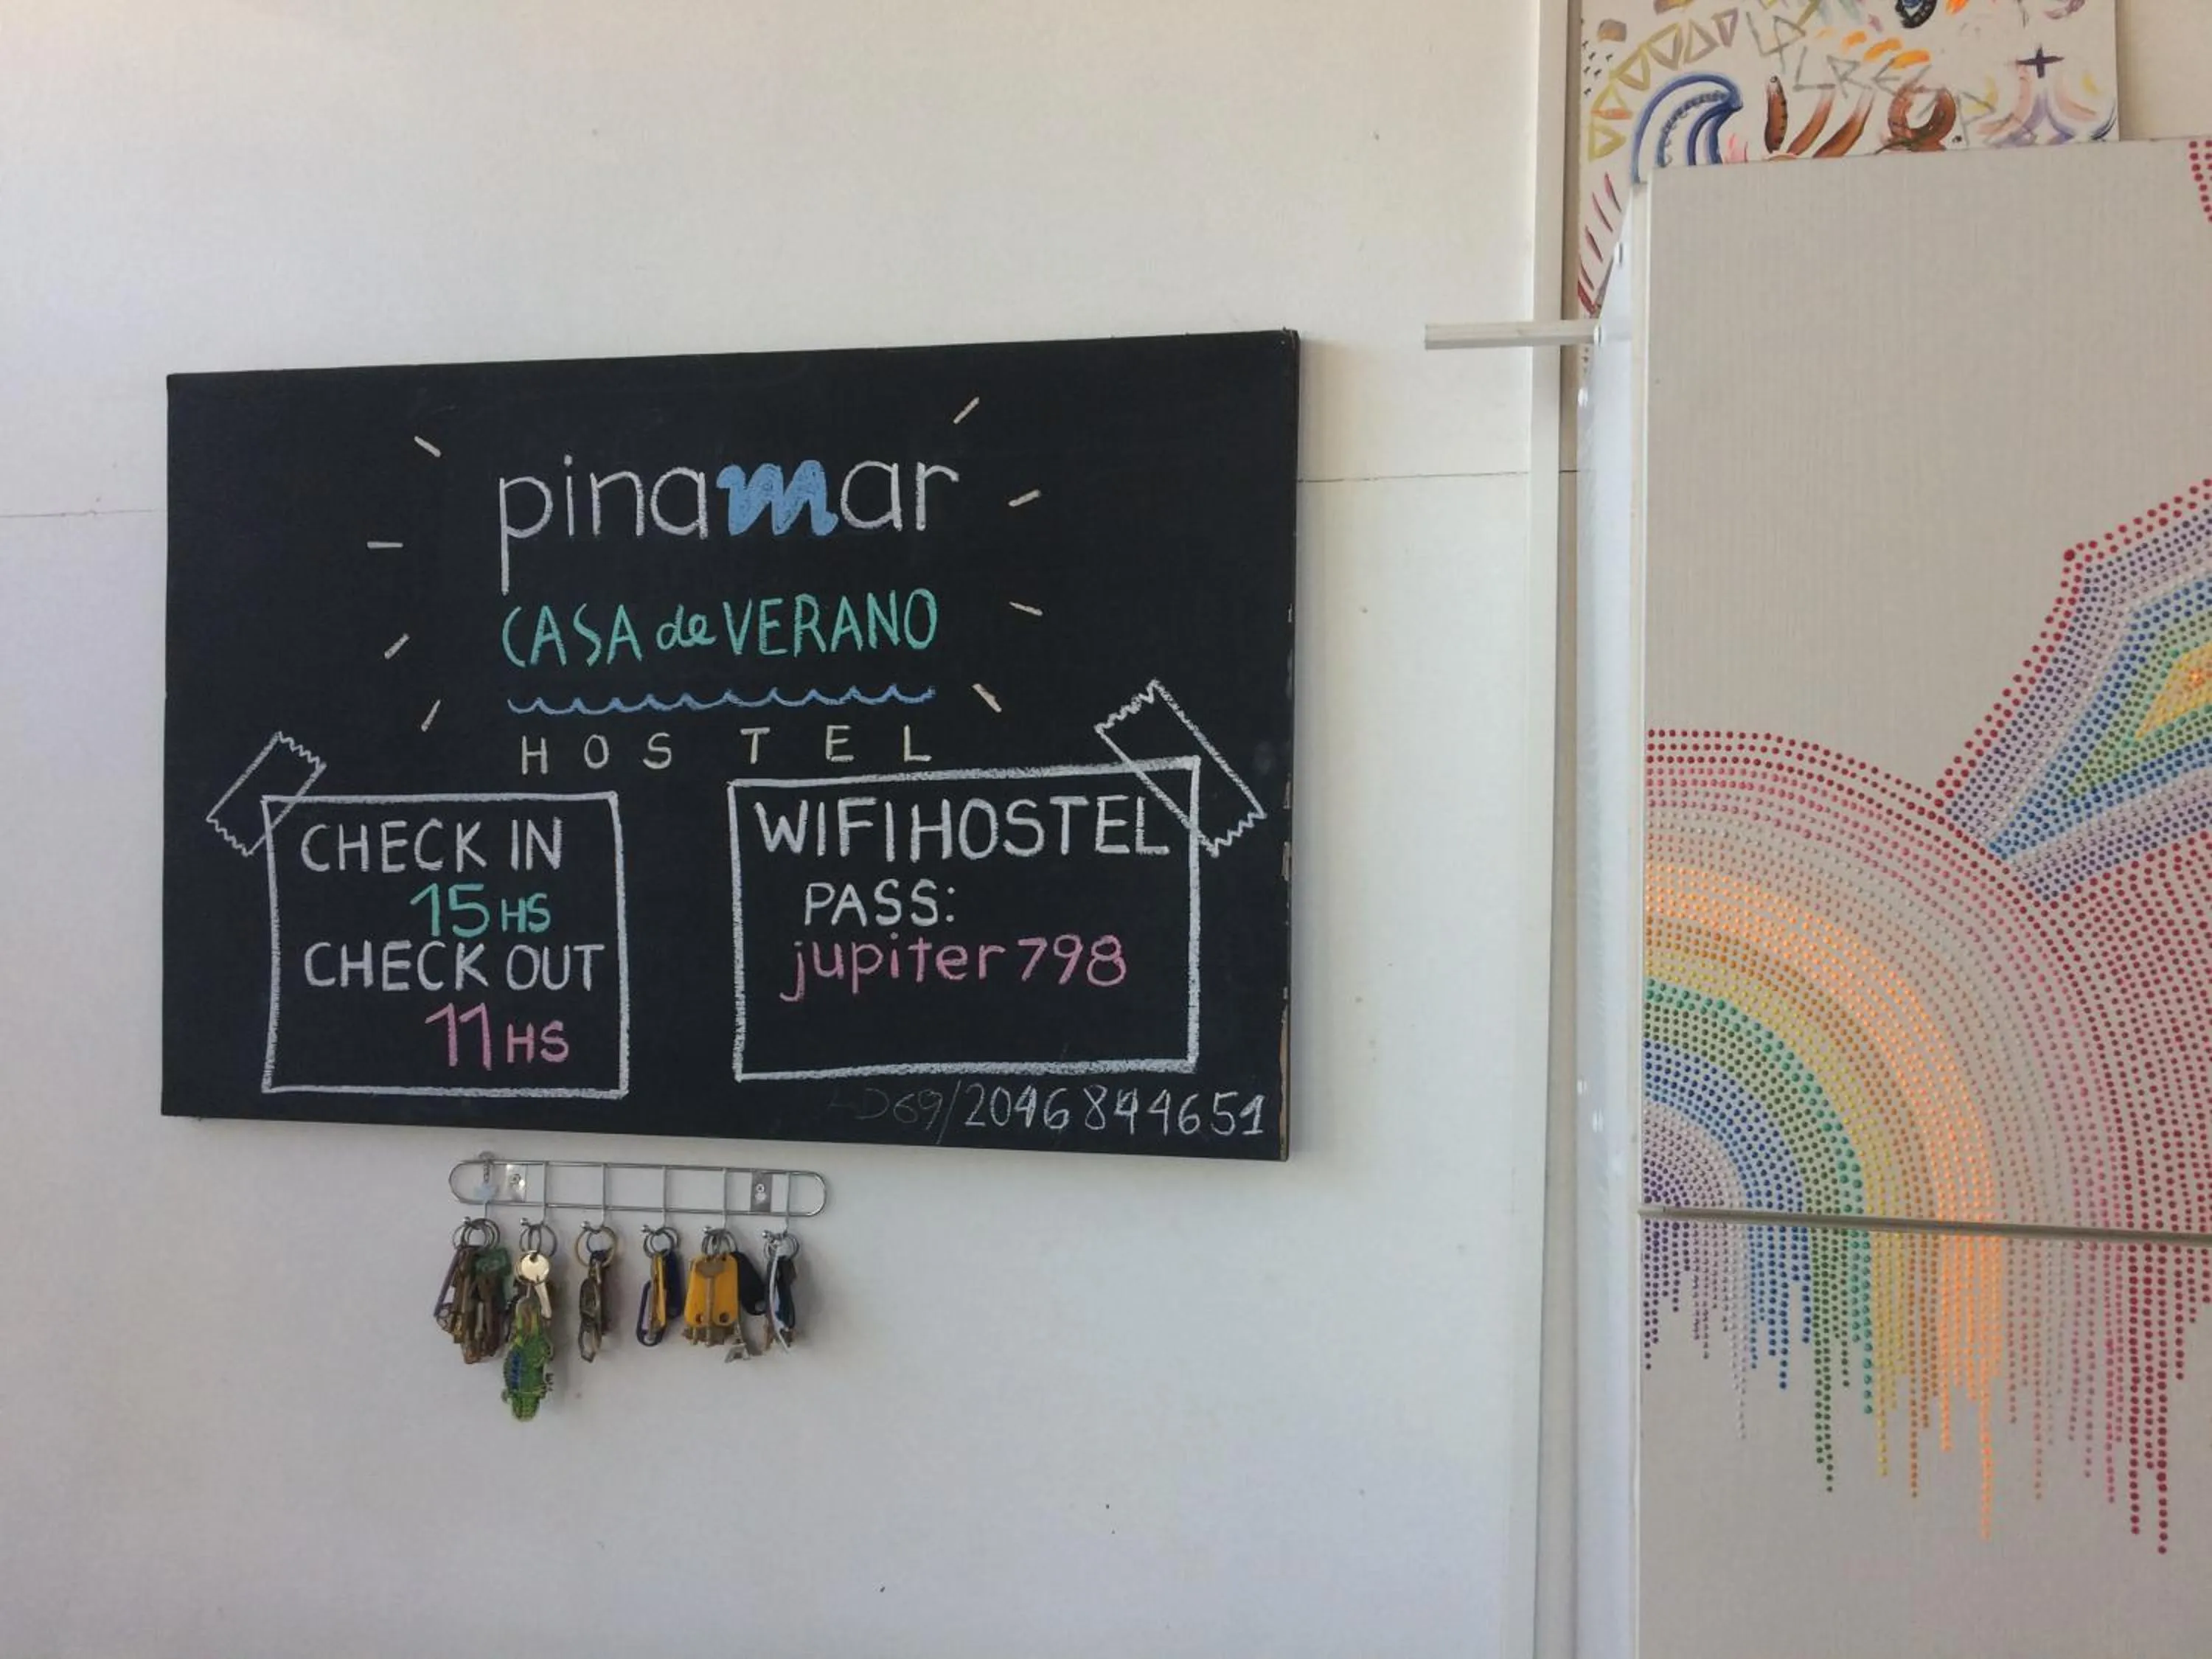 pinamar
CASA de VERANO
HOSTEL
CHECK IN
15 HS
CHECK OUT
11 HS
WIFIHOSTEL
PASS:
jupiter798
D69/2046844651